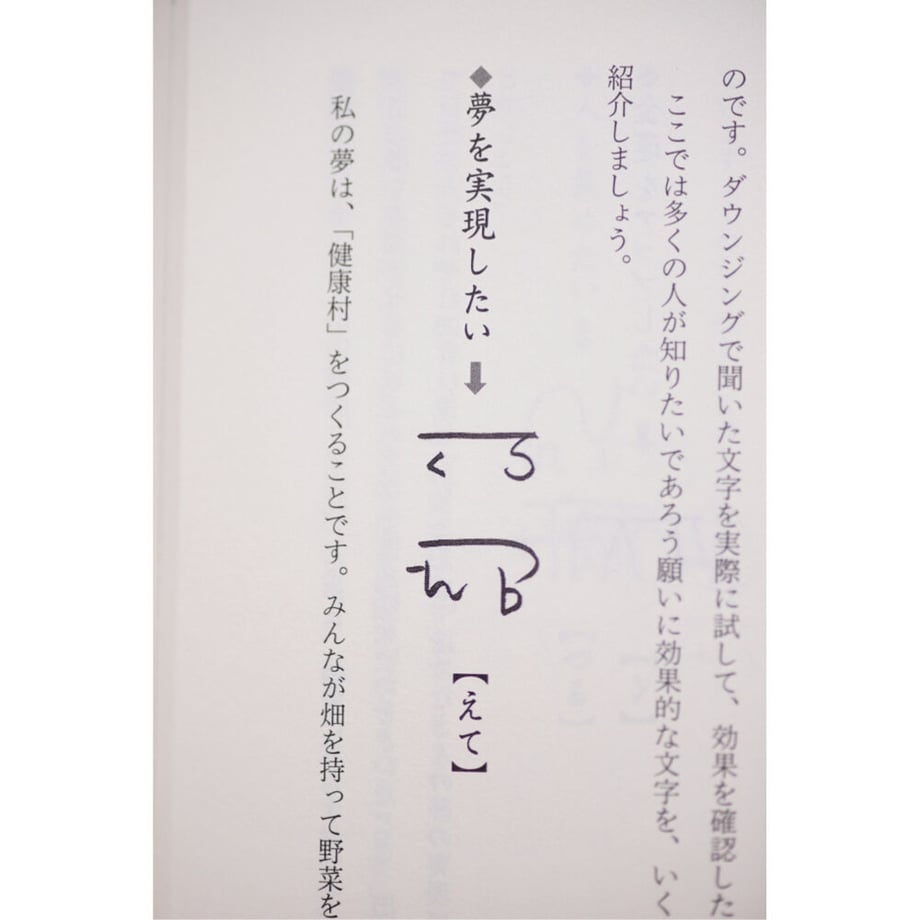 のです。ダウンジングで聞いた文字を実際に試して、効果を確認した
ここでは多くの人が知りたいであろう願いに効果的な文字を、いく
紹介しましょう。
◆夢を実現したい⬇
【えて】
私の夢は、「健康村」をつくることです。みんなが畑を持って野菜を